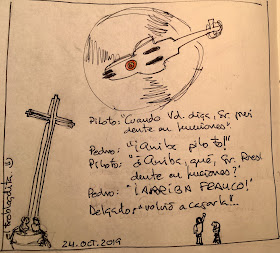 Piloto: "Cuando Vd. diga, Sr. presi
dente en funciones".
Pedro: "¡Arriba piloto!"
Piloto: "¿Arriba, qué, Sr. Presi
dente en funciones?
Pedro: "¡ARRIBA FRANCO!"
Delgado: "volvió a cagarla"..
24.OCT.2019
El Trobloglodita